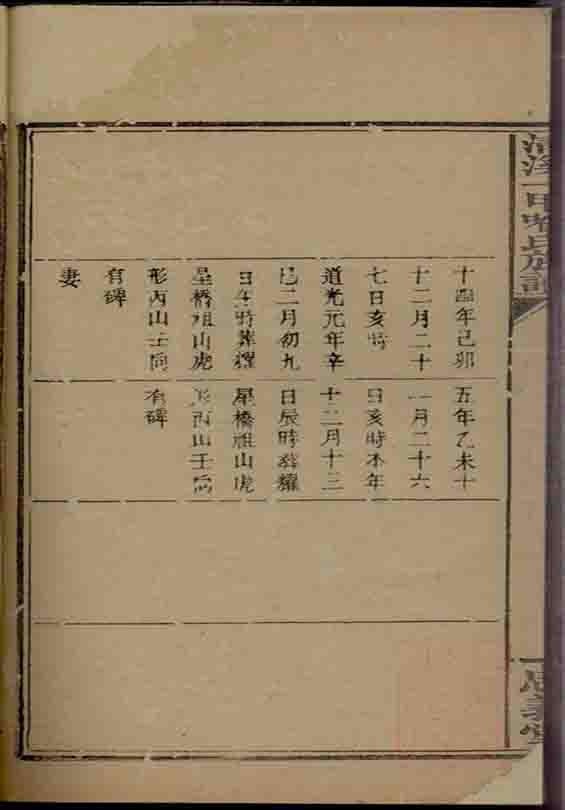 十四年己卯
十二月二十
七日亥時
道光元年辛
巳二月初九
日午時葬耀
星橋祖山虎
形丙山壬向
有碑
妻
五年乙未十
一月二十六
日亥時本年
十二月十三
日辰時葬耀
星橋祖山虎
形丙山壬向
有碑
一甲 氏族譜
義堂